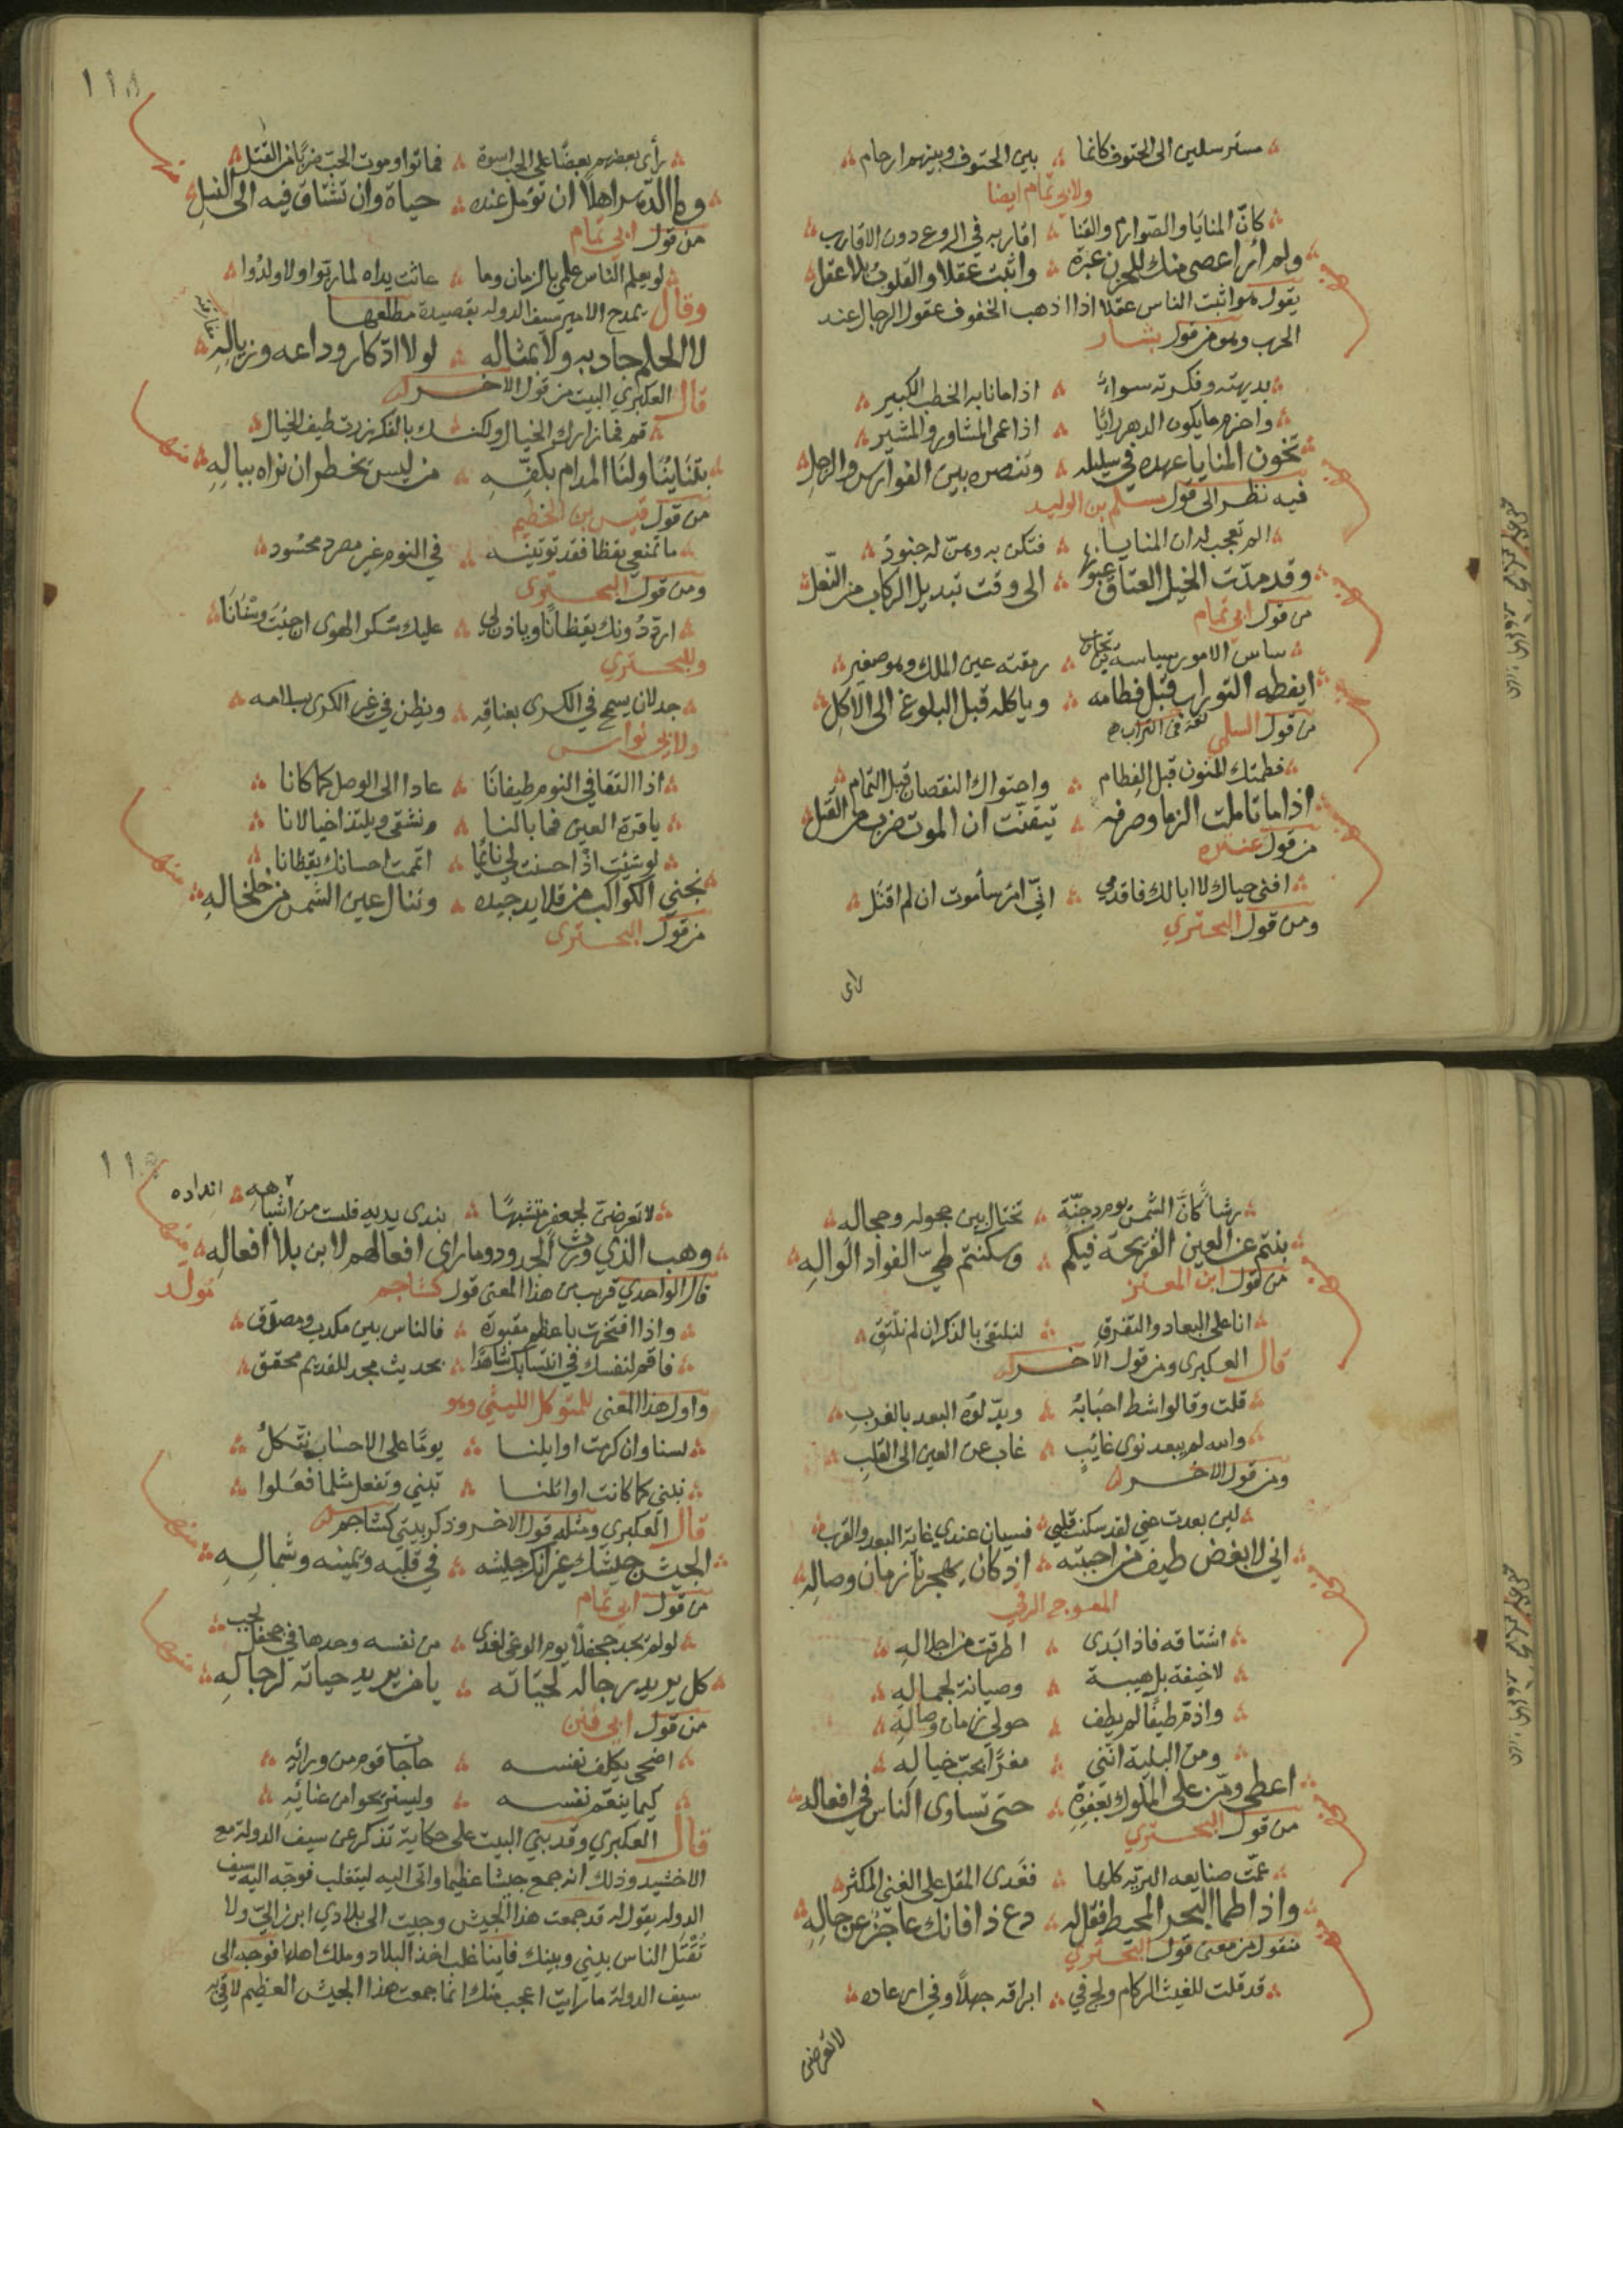 مسترسلين الى الحتوف كانما ∴ بين الحتوف وبينهم ارحام
ولابي تمام ايضا
كانّ المنايا والصوارم والقنا ∴ اقاربه في الروع دون الاقارب
ولم أر اعصى منك للحزن عبرة ∴ واثبت عقلا والقلوب بلا عقل
يقول هو اثبت الناس عقلا اذا اذهب الخفوف عقول الرجال عند
الحرب وهو من قول بشار
بديهته وفكرته سواءٌ ∴ اذا ما نابه الخطب الكبير
واحزم ما يكون الدهر رايًا ∴ اذا عمى المشاور والمشير
تخون المنايا عهده في سليله ∴ وتنصره بين الفوارس والرجل
فيه نظر الى قول مسلم بن الوليد
الم تعجب له ان المنايا ∴ فتكن به وهنّ له جنودُ
وقد مدّت الخيل العتاق عيونها ∴ الى وقت تبديل الركاب من النّعل
من قول ابي تمام
ساس الامور سياسة ابن تجارب ∴ رمقته عين الملك وهو صغير
ايفطمه التوراب قبل فطامه ∴ وياكله قبل البلوغ الى الاكل
من قول السلمي لغة في التراب
فطمتك المنون قبل الفطام ∴ واحتواك النقصان قبل التمام
اذا ما تاملت الزمان وصرفه ∴ تيقنت ان الموت ضرب من القتل
من قول عنتره
اقنى حياك لا ابا لك فاقدمي ∴ انّي امرؤ ساموت ان لم اقتل
ومن قول البحتري
راى
١١٨
رأى بعضهم بعضًا على الحب اسوة ∴ فماتوا وموت الحبّ ضربًا من القتل
وما الدهر اهلاً ان تؤمل عنده ∴ حياة وان تشتاق فيه الى النسل
من قول ابي تمام
لو يعلم الناس علمي بالزمان وما ∴ عاثت يداه لما ربّوا ولا ولدُوا
وقال يمدح الامير سيف الدوله بقصيدة مطلعها
لا الحلم جاد به ولا بمثاله ∴ لولا ادّكار وداعه وزياله
قال العكبري البيت من قول الاخر
قم فما زارك الخيال ولكنـك بالفكر زرت طيف الخيال
بتنا يناولنا المدام بكفّهِ ∴ من ليس يخطر ان نراه ببالهِ
من قول قيس بن الخطيم
ما تمنعي يقظا فقد توتينه ∴ في النوم غير مصرد محسُود
ومن قول البحتري
اردّ دونك يقظانًا وياذن لي ∴ عليك سكر الهوى ان جئت وسْنَانَا
وللبحتري
جدلان يسمح في الكرى بعناقِه ∴ ويظن في غير الكرى بسلامه
ولابي نواس
اذا التقا في النوم طيفانا ∴ عادا الى الوصل كما كانا
يا قرة العين فما بالنا ∴ ونشقى ويلتذ اخيالانا
لو شئت اذ احسنت لي نائمًا ∴ اتممت احسانك يقظانا
نجني الكواكب من قلايد جيده ∴ وننال عين الشمس من خلخالهِ
من قول البحتري
رشأ كأنّ الشمس يوم دجنّة ∴ تختال بين حجوله وحجاله
بنتم عن العين القريحة فيكم ∴ وسكنتم طيّ الفواد الواله
من قول ابن المعتز
انا على البعاد والتفرق ∴ لنلتقى بالذكر ان لم نلتق
قال العكبرى ومن قول الاخر
قلت وقالوا شط احبابه ∴ وبدّلوه البعد بالقرب
والله لم يبعد نوى غايب ∴ غاب عن العين الى القلب
ومن قول الاخر
لين بعدت عني لقد سكنت قلبي ∴ فسيان عندي غاية البعد والقرب
اني لابغض طيف من احببته ∴ اذ كان يهجرنا زمان وصاله
المعوج الرقي
اشتاقه فاذا ابدى ∴ اطرقت من اجلاله
لا خيفة بل هيبة ∴ وصيانة لجماله
ومن البلية انّني ∴ مغرًا بحبّ خياله
اعطى ومنّ على الملوك بعفوه ∴ حتى تساوى الناس في افعاله
من قول البحتري
عمّت صنايعه البريّه كلها ∴ فغدى المقل على الغني المكثر
واذا طما البحر المحيط فقل له ∴ دع ذا فانك عاجز عن حالهِ
منقول من معنى قول البحتري
قد قلت للغيث الركام ولج في ∴ ابراقه جهلاً وفي ارعاده
لا تعرضن
لا تعرضنّ لجعفر متشبهًا ∴ بندى يديه فلست من اشباهه ∴ انداده
وهب الذي ورث الجدود وما راى افعالهم لابن بلا افعاله
قال الواحدي قريب من هذا المعنى قول كشاجم
واذا افتخرت باعظم مقبورة ∴ فالناس بين مكذب ومصدّق
فاقم لنفسك في انتسابك شاهدًا ∴ بحديث مجد للقديم محقق
واول هذا المعنى للمتوكل الليثي وهو
لسنا وان كرمت اوايلنا ∴ يومًا على الاحساب نتّكلُ
نبني كما كانت اوائلنا ∴ تبني وتفعل مثل ما فعَلوا
قال العكبري ومثله قول الاخر وذكر بيتي كشاجم
الجيش جيشك غير انك جيشه ∴ في قلبه ويمينه وشمالهِ
من قول ابي تمام
لو لم يقد جحفلاً يوم الوغى لغدى ∴ من نفسه وحدها في جحفل لجب
كل يريد رجاله لحياته ∴ يا من يريد حياته لرجالهِ
من قول
اضحى يكلف نفسه ∴ حاجات قوم من ورائه
كيما ينعّم نفسه ∴ وليستريحوا من عنائه
قال العكبري وقد بني البيت على حكاية تذكر عن سيف الدولة مع
الاخشيد وذلك انه جمع جيشا عظيما واتى اليه ليتغلب فوجّه اليه سيف
الدوله يقول له قد جمعت هذا الجيش وجيت الى بلادي ابرز اليّ ولا
تقتل الناس بيني وبينك فاينا غلب اخذ البلاد وملك اهلها فوجه الى
سيف الدولة ما رايت اعجب منك انّما جمعت هذا الجيش العظيم لاقي به